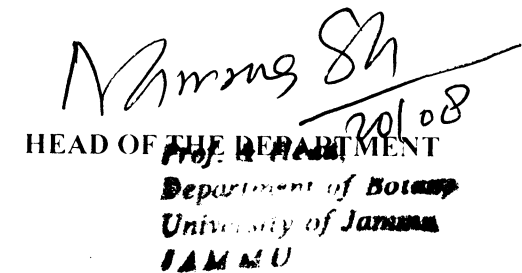 20/08
HEAD OF THE DEPARTMENT
Prof. & Head,
Department of Botany
University of Jammu
JAMMU